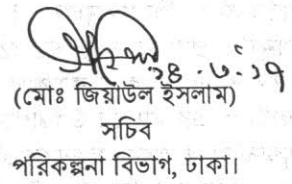 ১৪.৬.১৭
(মোঃ জিয়াউল ইসলাম)
সচিব
পরিকল্পনা বিভাগ, ঢাকা।